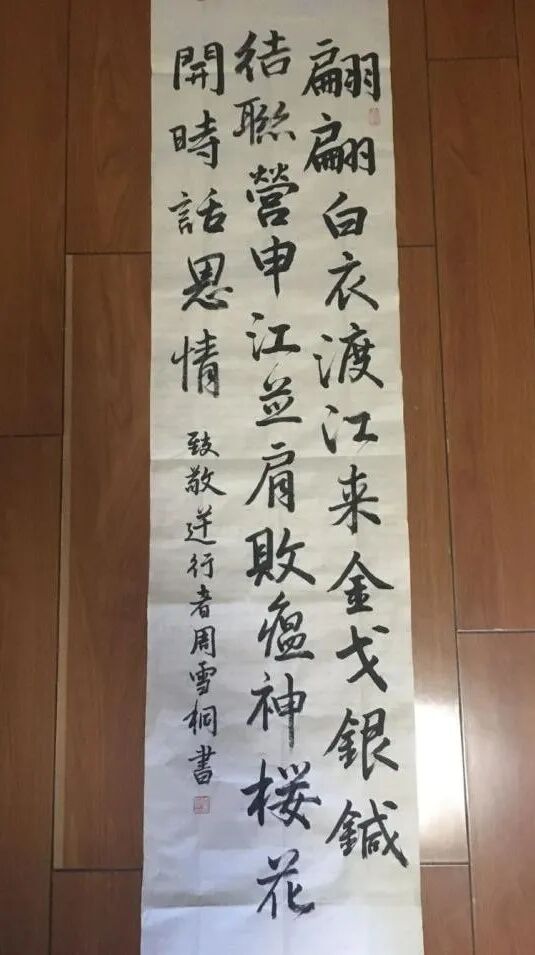 翩翩白衣渡江来金戈銀鍼
结聯營申江並肩敗瘟神桜花
開時話恩情
致敬逆行者周雪桐書